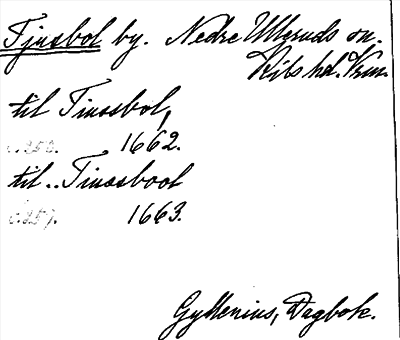 Tjusbol by. Nedre Ulleruds sn.
Kils hd. Vrm.
til Tiussbol,
s. 256. 1662.
til.. Tiussboot
s. 257. 1663.
Gyllenius, Dagbok.